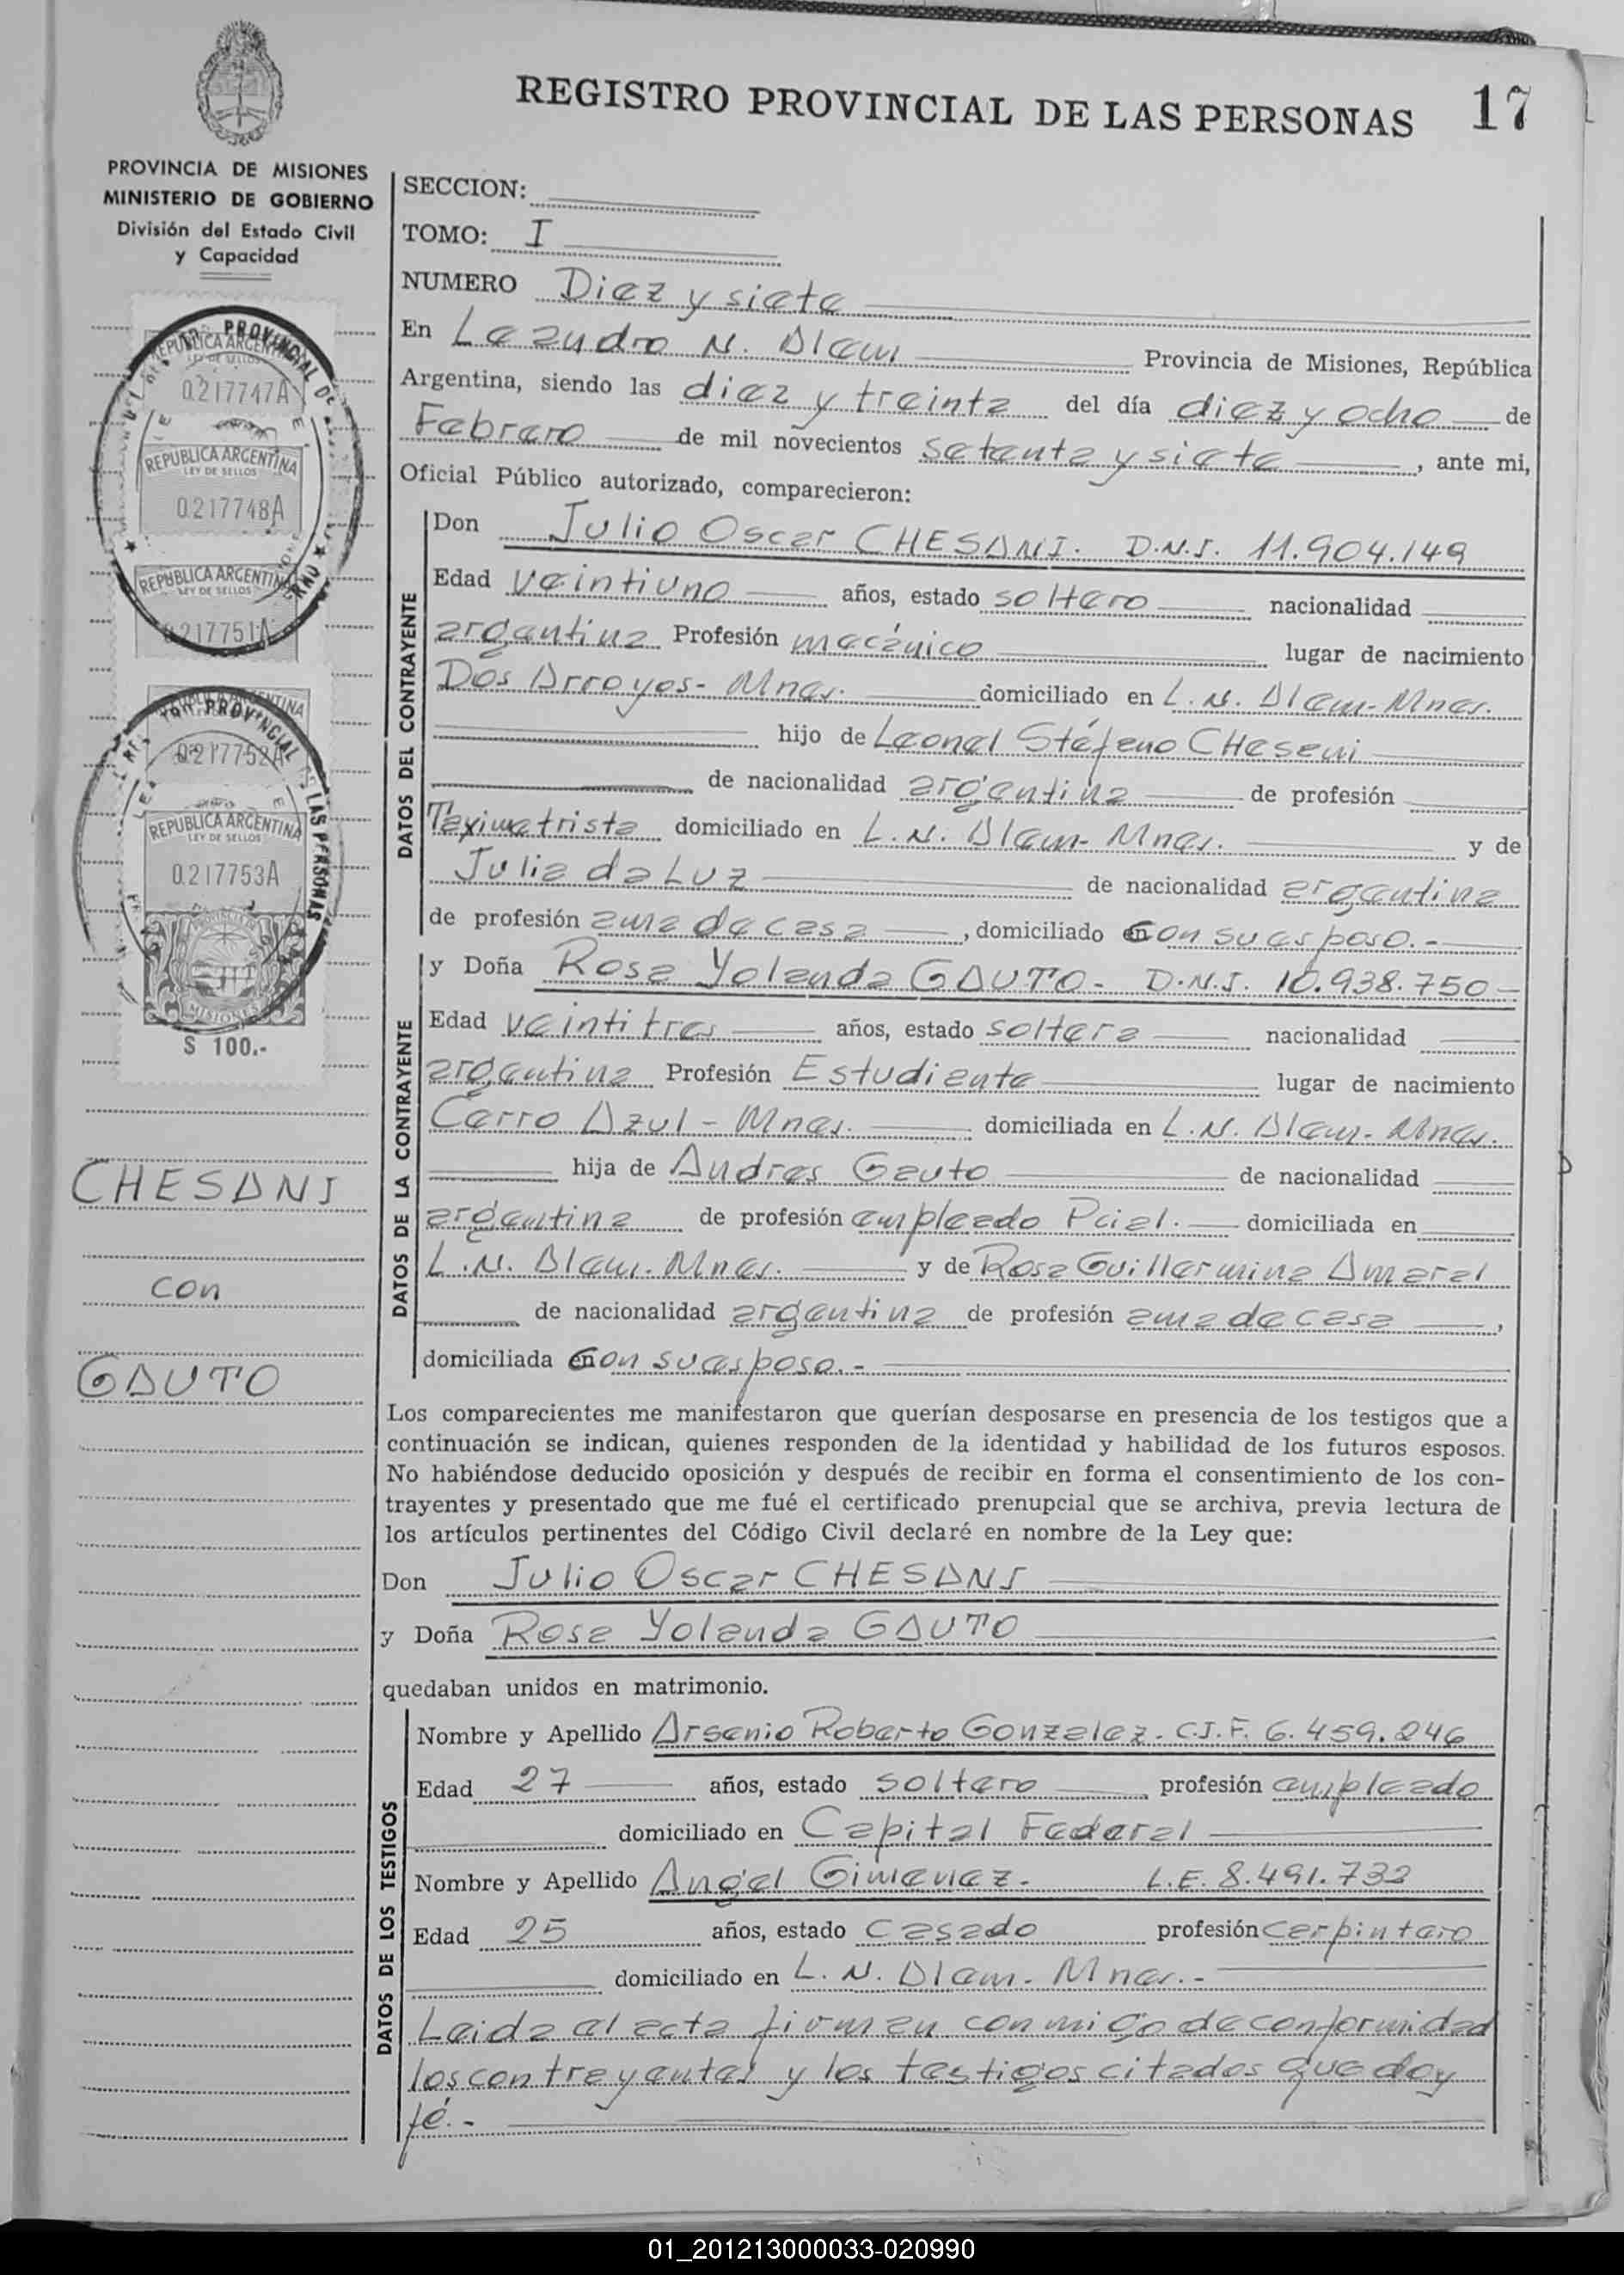 REGISTRO PROVINCIAL DE LAS PERSONAS 17
PROVINCIA DE MISIONES
MINISTERIO DE GOBIERNO
División del Estado Civil
y Capacidad
REPUBLICA ARGENTINA
LEY DE SELLOS
0.217747A
REPUBLICA ARGENTINA
LEY DE SELLOS
0.217748A
REPUBLICA ARGENTINA
LEY DE SELLOS
0.217751A
0.217752A
REPUBLICA ARGENTINA
LEY DE SELLOS
0.217753A
MISIONES
$ 100.-
CHESANI
con
GAUTO
SECCION:
TOMO: I
NUMERO Diez y siete
En Leandro N. Alem Provincia de Misiones, República
Argentina, siendo las diez y treinta del día diez y ocho de
Febrero de mil novecientos setenta y siete, ante mi,
Oficial Público autorizado, comparecieron:
DATOS DEL CONTRAYENTE
Don Julio Oscar CHESANI. D.N.I. 11.904.149
Edad veintiuno años, estado soltero nacionalidad
argentina Profesión mecánico lugar de nacimiento
Dos Arroyos- Mnes. domiciliado en L. N. Alem- Mnes.
hijo de Leonel Stéfano CHesani
de nacionalidad argentina de profesión
Taximetrista domiciliado en L. N. Alem- Mnes. y de
Julia da Luz de nacionalidad argentina
de profesión ama de casa, domiciliado con su esposo.-
DATOS DE LA CONTRAYENTE
y Doña Rosa Yolanda GAUTO- D.N.I. 10.938.750-
Edad veintitres años, estado soltera nacionalidad
argentina Profesión Estudiante lugar de nacimiento
Cerro Azul - Mnes. domiciliada en L. N. Alem- Mnes.
hija de Andres Gauto de nacionalidad
argentina de profesión empleado Pcial. domiciliada en
L. N. Alem- Mnes. y de Rosa Guillermina Amaral
de nacionalidad argentina de profesión ama de casa,
domiciliada con su esposo.-
Los comparecientes me manifestaron que querían desposarse en presencia de los testigos que a
continuación se indican, quienes responden de la identidad y habilidad de los futuros esposos.
No habiéndose deducido oposición y después de recibir en forma el consentimiento de los con-
trayentes y presentado que me fué el certificado prenupcial que se archiva, previa lectura de
los artículos pertinentes del Código Civil declaré en nombre de la Ley que:
Don Julio Oscar CHESANI
y Doña Rosa Yolanda GAUTO
quedaban unidos en matrimonio.
DATOS DE LOS TESTIGOS
Nombre y Apellido Arsenio Roberto Gonzalez- C.I.F. 6.459.246
Edad 27 años, estado soltero profesión empleado
domiciliado en Capital Federal
Nombre y Apellido Angel Gimenez- L.E. 8.491.732
Edad 25 años, estado casado profesión carpintero
domiciliado en L. N. Alem- Mnes.-
Leida el acta firman conmigo de conformidad
los contrayentes y los testigos citados que doy
fé.-
01_201213000033-020990